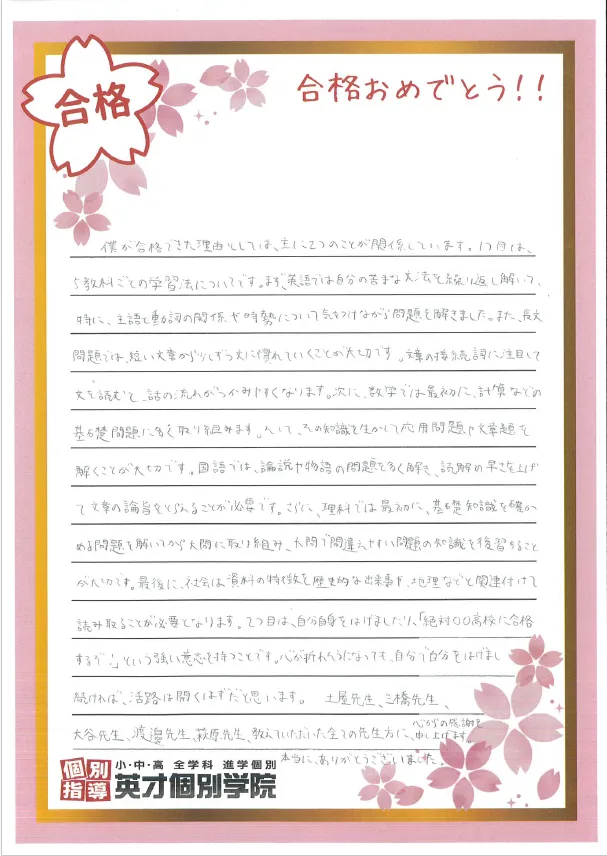 合格
合格おめでとう!!
僕が合格できた理由としては、主に2つのことが関係しています。1つ目は、
5教科ごとの学習法についてです。まず、英語では自分の苦手な文法を繰り返し解いて、
特に、主語と動詞の関係や時勢について気をつけながら問題を解きました。また、長文
問題では、短い文章から少しずつ文に慣れていくことが大切です。文章の接続詞に注目して
文を読むと、話の流れがつかみやすくなります。次に、数学では最初に、計算などの
基礎問題に多く取り組みます。そして、その知識を生かして応用問題や文章題を
解くことが大切です。国語では、論説や物語の問題を多く解き、読解の早さを上げ
て文章の論旨をとらえることが必要です。さらに、理科では最初に、基礎知識を確か
める問題を解いてから大問に取り組み、大問で間違えやすい問題の知識を復習すること
が大切です。最後に、社会は資料の特徴を歴史的な出来事や、地理などと関連付けて
読み取ることが必要となります。2つ目は、自分自身をはげましたり、「絶対〇〇高校に合格
するぞ!」という強い意志を持つことです。心が折れそうになっても、自分で自分をはげまし
続ければ、活路は開くはずだと思います。 土屋先生、三橋先生、
大谷先生、渡邉先生、萩原先生、教えていただいた全ての先生方に、心からの感謝を申し上げます。
本当に、ありがとうございました。
個別指導
小・中・高 全学科 進学個別
英才個別学院